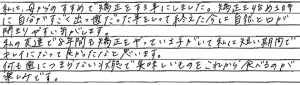 私は、母からのすすめで矯正をする事にしました。矯正を始める時
に自分がすごく出っ歯だった事もいして終えた今では自然と口が
閉まりやすい気がします。
私の友達で8年間も矯正をやっている子がいて私は短い期間で
キレイになって良かったなと思います。
何も歯につまらない状態で美味しいものをこれから食べるのが
楽しみです。